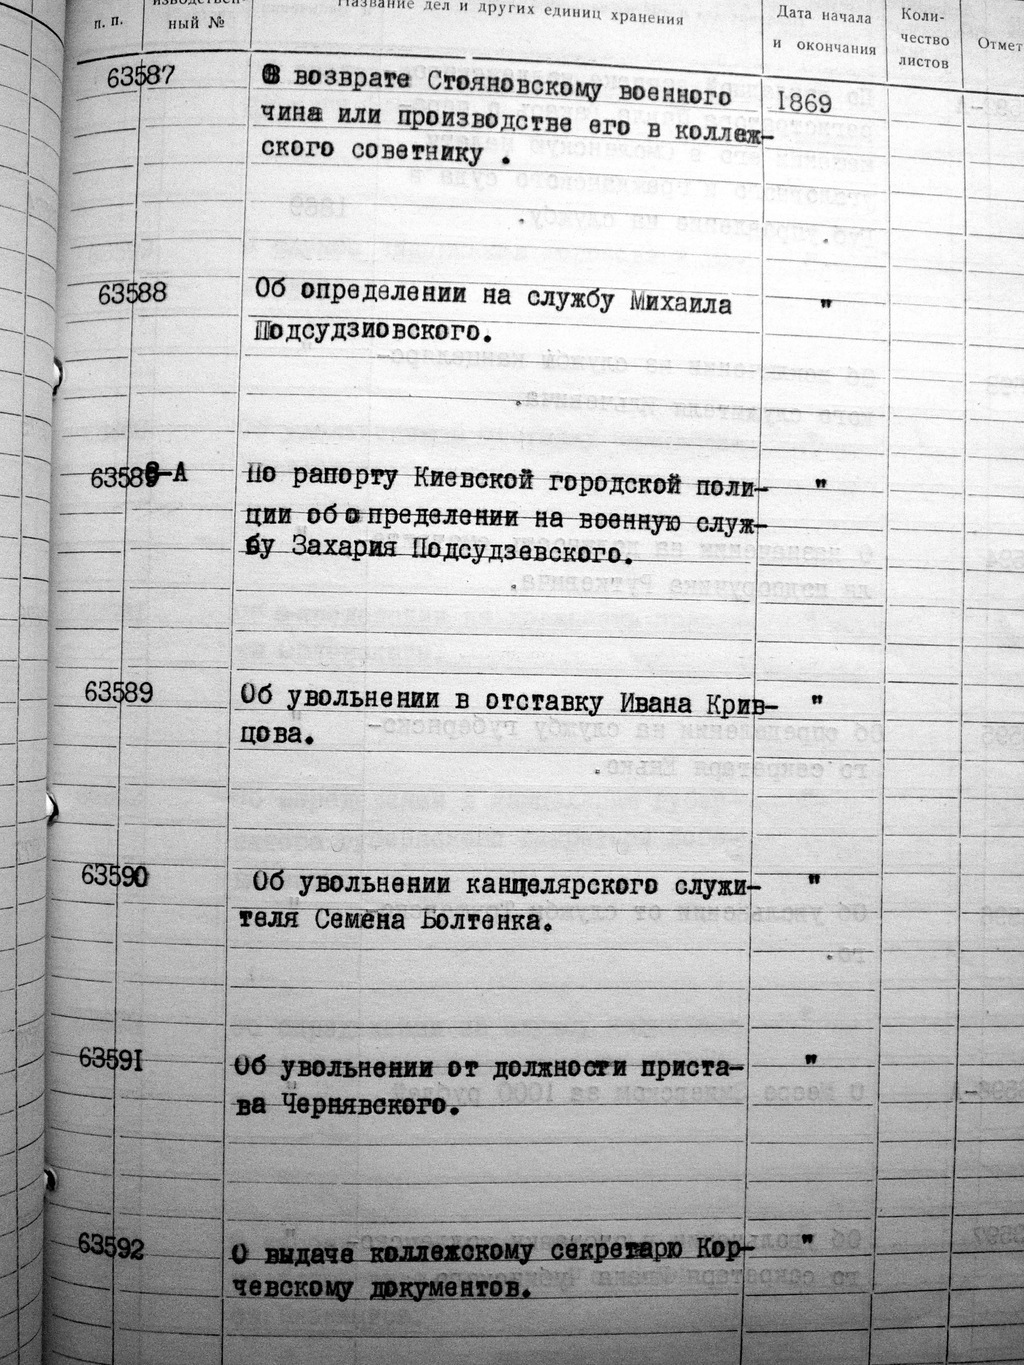 п. п.
ный №
Название дел и других единиц хранения
Дата начала
и окончания
Коли-
чество
листов
Отмет
63587
О возврате Стояновскому военного
1869
чина или производстве его в коллеж-
ского советнику .
63588
Об определении на службу Михаила
"
Подсудзиовского.
63588-А
По рапорту Киевской городской поли-
"
ции об определении на военную служ-
бу Захария Подсудзевского.
63589
Об увольнении в отставку Ивана Крив-
"
цова.
63590
Об увольнении канцелярского служи-
"
теля Семена Болтенка.
63591
Об увольнении от должности приста-
"
ва Чернявского.
63592
О выдаче коллежскому секретарю Кор-
"
чевскому документов.